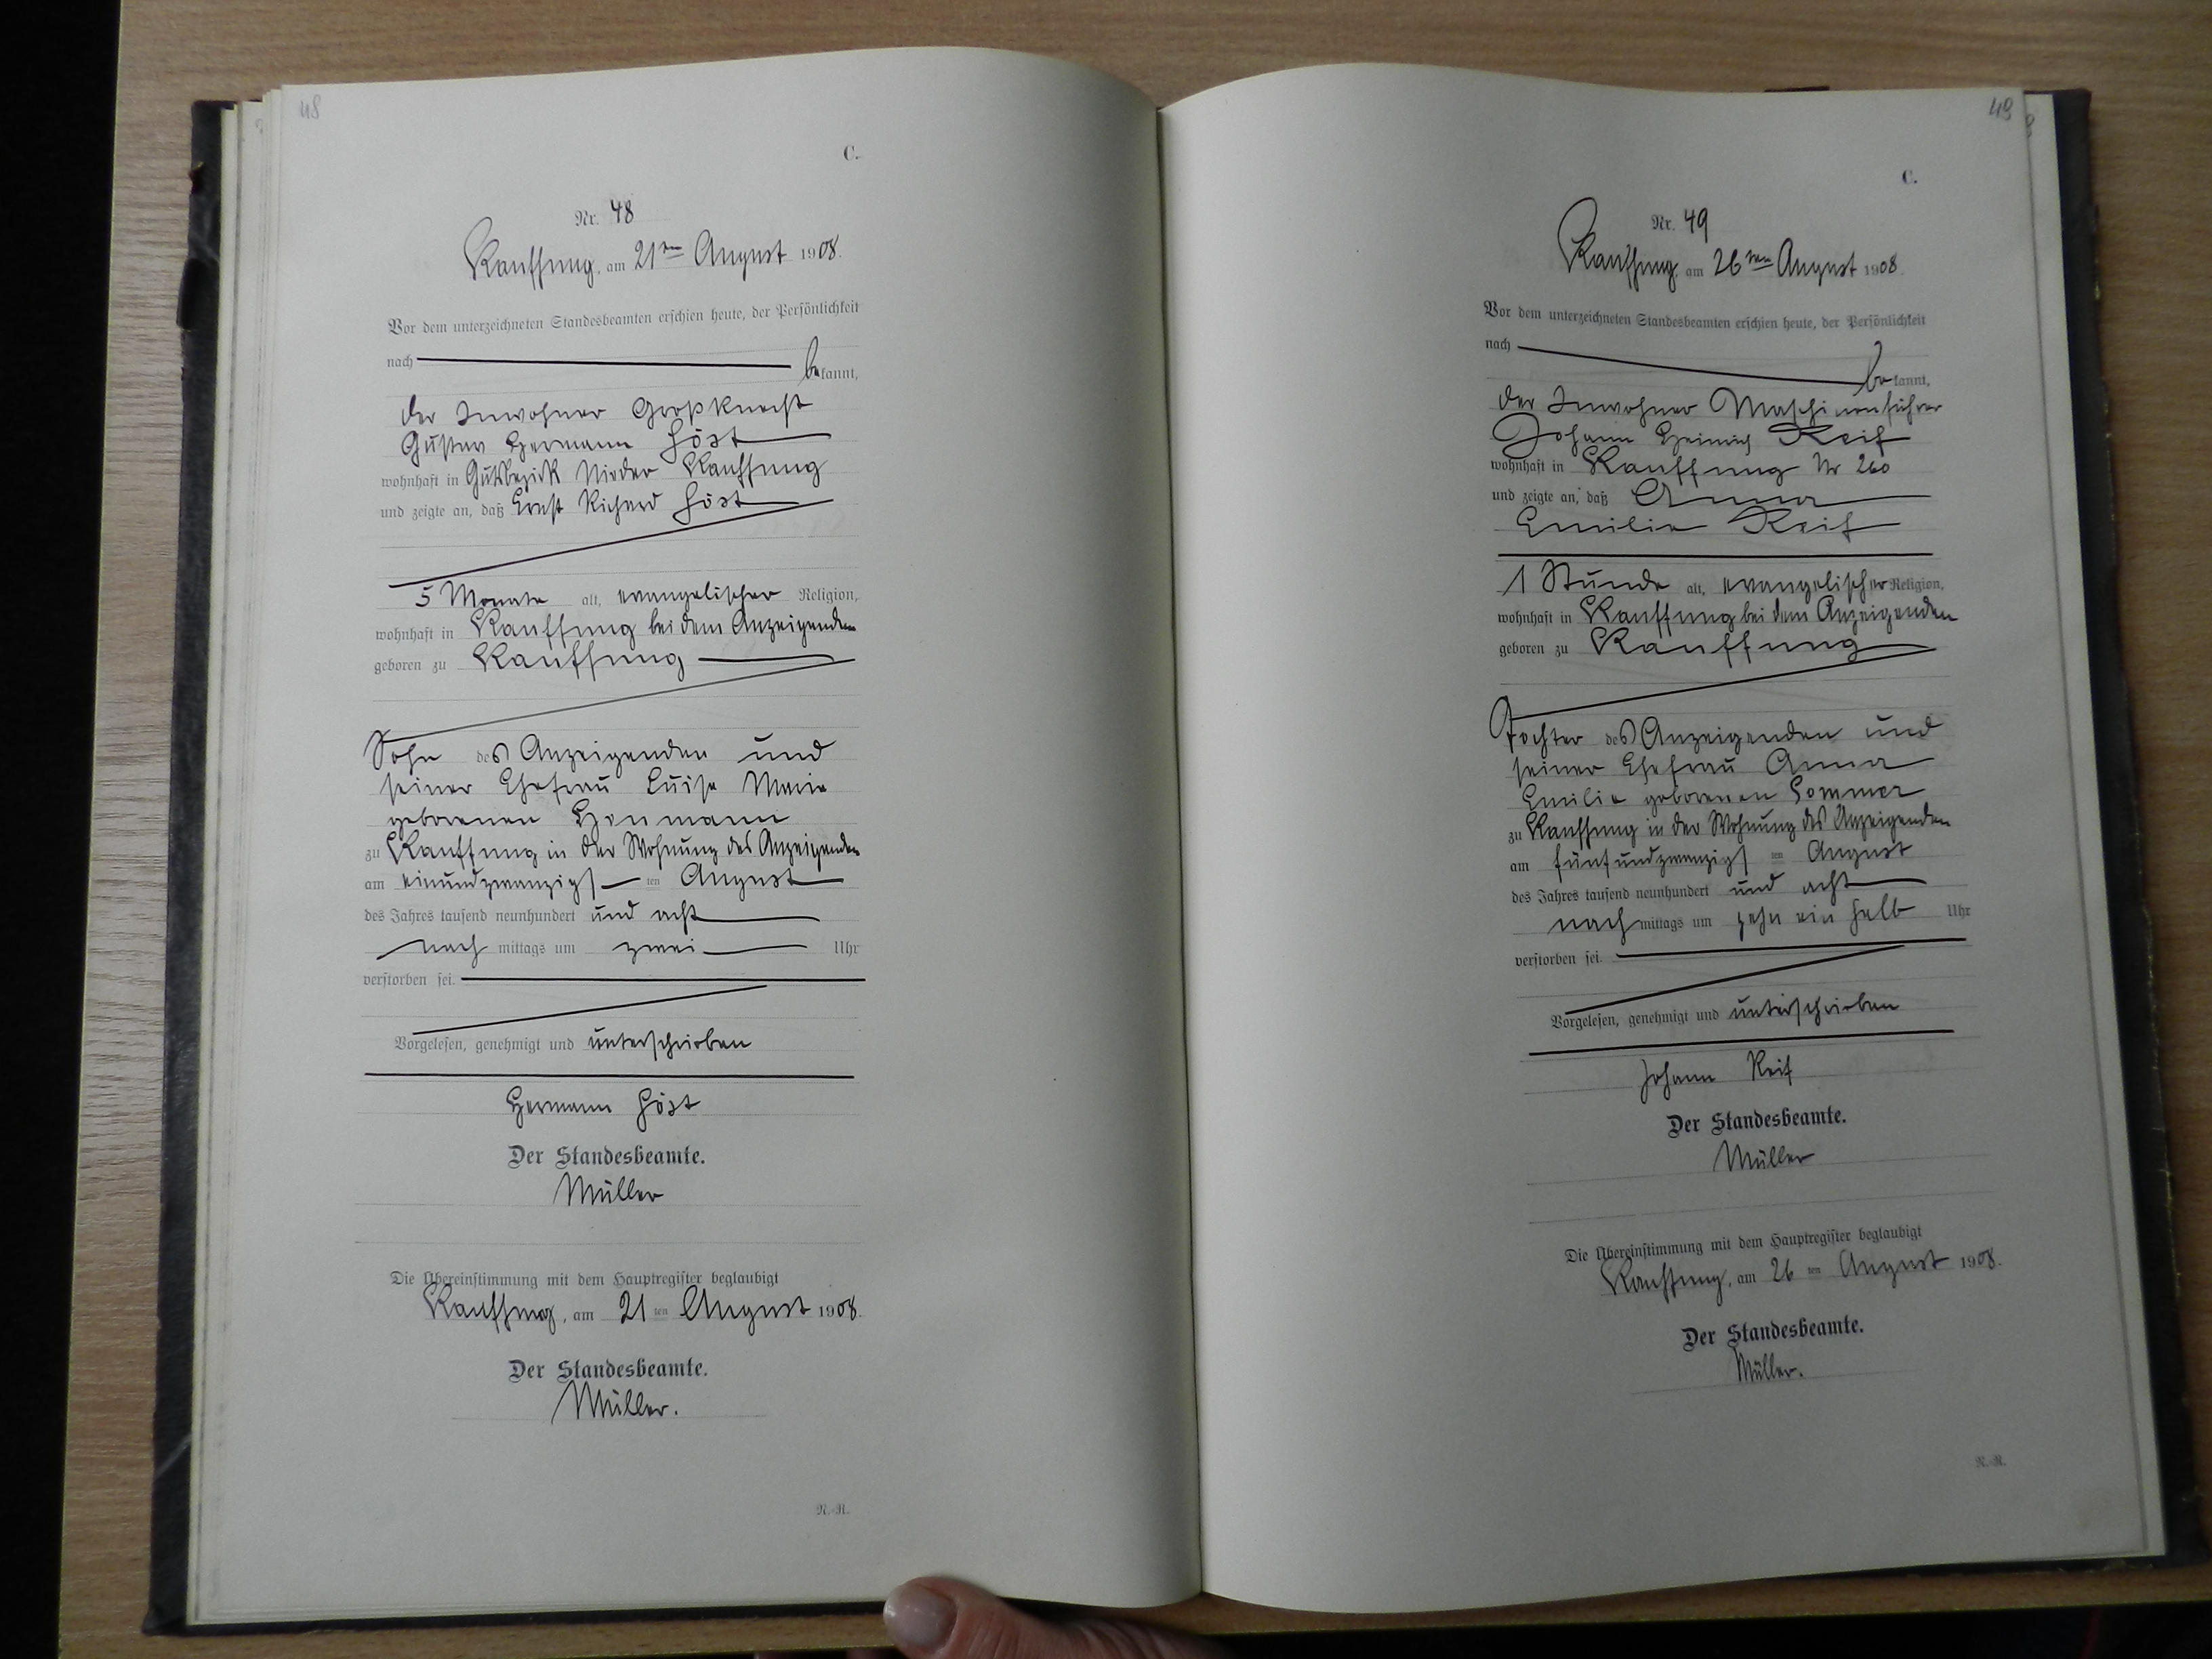 48
C.
Nr. 48
Kauffung, am 21ten August 1908.
Vor dem unterzeichneten Standesbeamten erschien heute, der Persönlichkeit
nach bekannt,
der Inwohner Großknecht
Gustav Hermann Höst
wohnhaft in Gutsbezirk Nieder Kauffung
und zeigte an, daß Ernst Richard Höst
5 Monate alt, evangelischer Religion,
wohnhaft in Kauffung bei dem Anzeigenden
geboren zu Kauffung
Sohn des Anzeigenden und
seiner Ehefrau Luise Marie
geborenen
zu Kauffung in der Wohnung des Anzeigenden
am einundzwanzigsten August
des Jahres tausend neunhundert und acht
nachmittags um zwei Uhr
verstorben sei.
Vorgelesen, genehmigt und unterschrieben
Hermann Höst
Der Standesbeamte.
Müller
Die Übereinstimmung mit dem Hauptregister beglaubigt
Kauffung, am 21ten August 1908.
Der Standesbeamte.
Müller.
N.-R.
49
C.
Nr. 49
Kauffung, am 26ten August 1908
Vor dem unterzeichneten Standesbeamten erschien heute, der Persönlichkeit
nach bekannt,
der Inwohner Maschinenführer
Johann Heinrich Reif
wohnhaft in Kauffung Nr 260
und zeigte an, daß Anna
Emilie Reif
1 Stunde alt, evangelischer Religion,
wohnhaft in Kauffung bei dem Anzeigenden
geboren zu Kauffung
Tochter des Anzeigenden und
seiner Ehefrau Anna
Emilie geborenen Sommer
zu Kauffung in der Wohnung des Anzeigenden
am fünfundzwanzigsten August
des Jahres tausend neunhundert und acht
nachmittags um zehn ein halb Uhr
verstorben sei.
Vorgelesen, genehmigt und unterschrieben
Johann Reif
Der Standesbeamte.
Müller
Die Übereinstimmung mit dem Hauptregister beglaubigt
Kauffung, am 26ten August 1908.
Der Standesbeamte.
Müller.
N.-R.